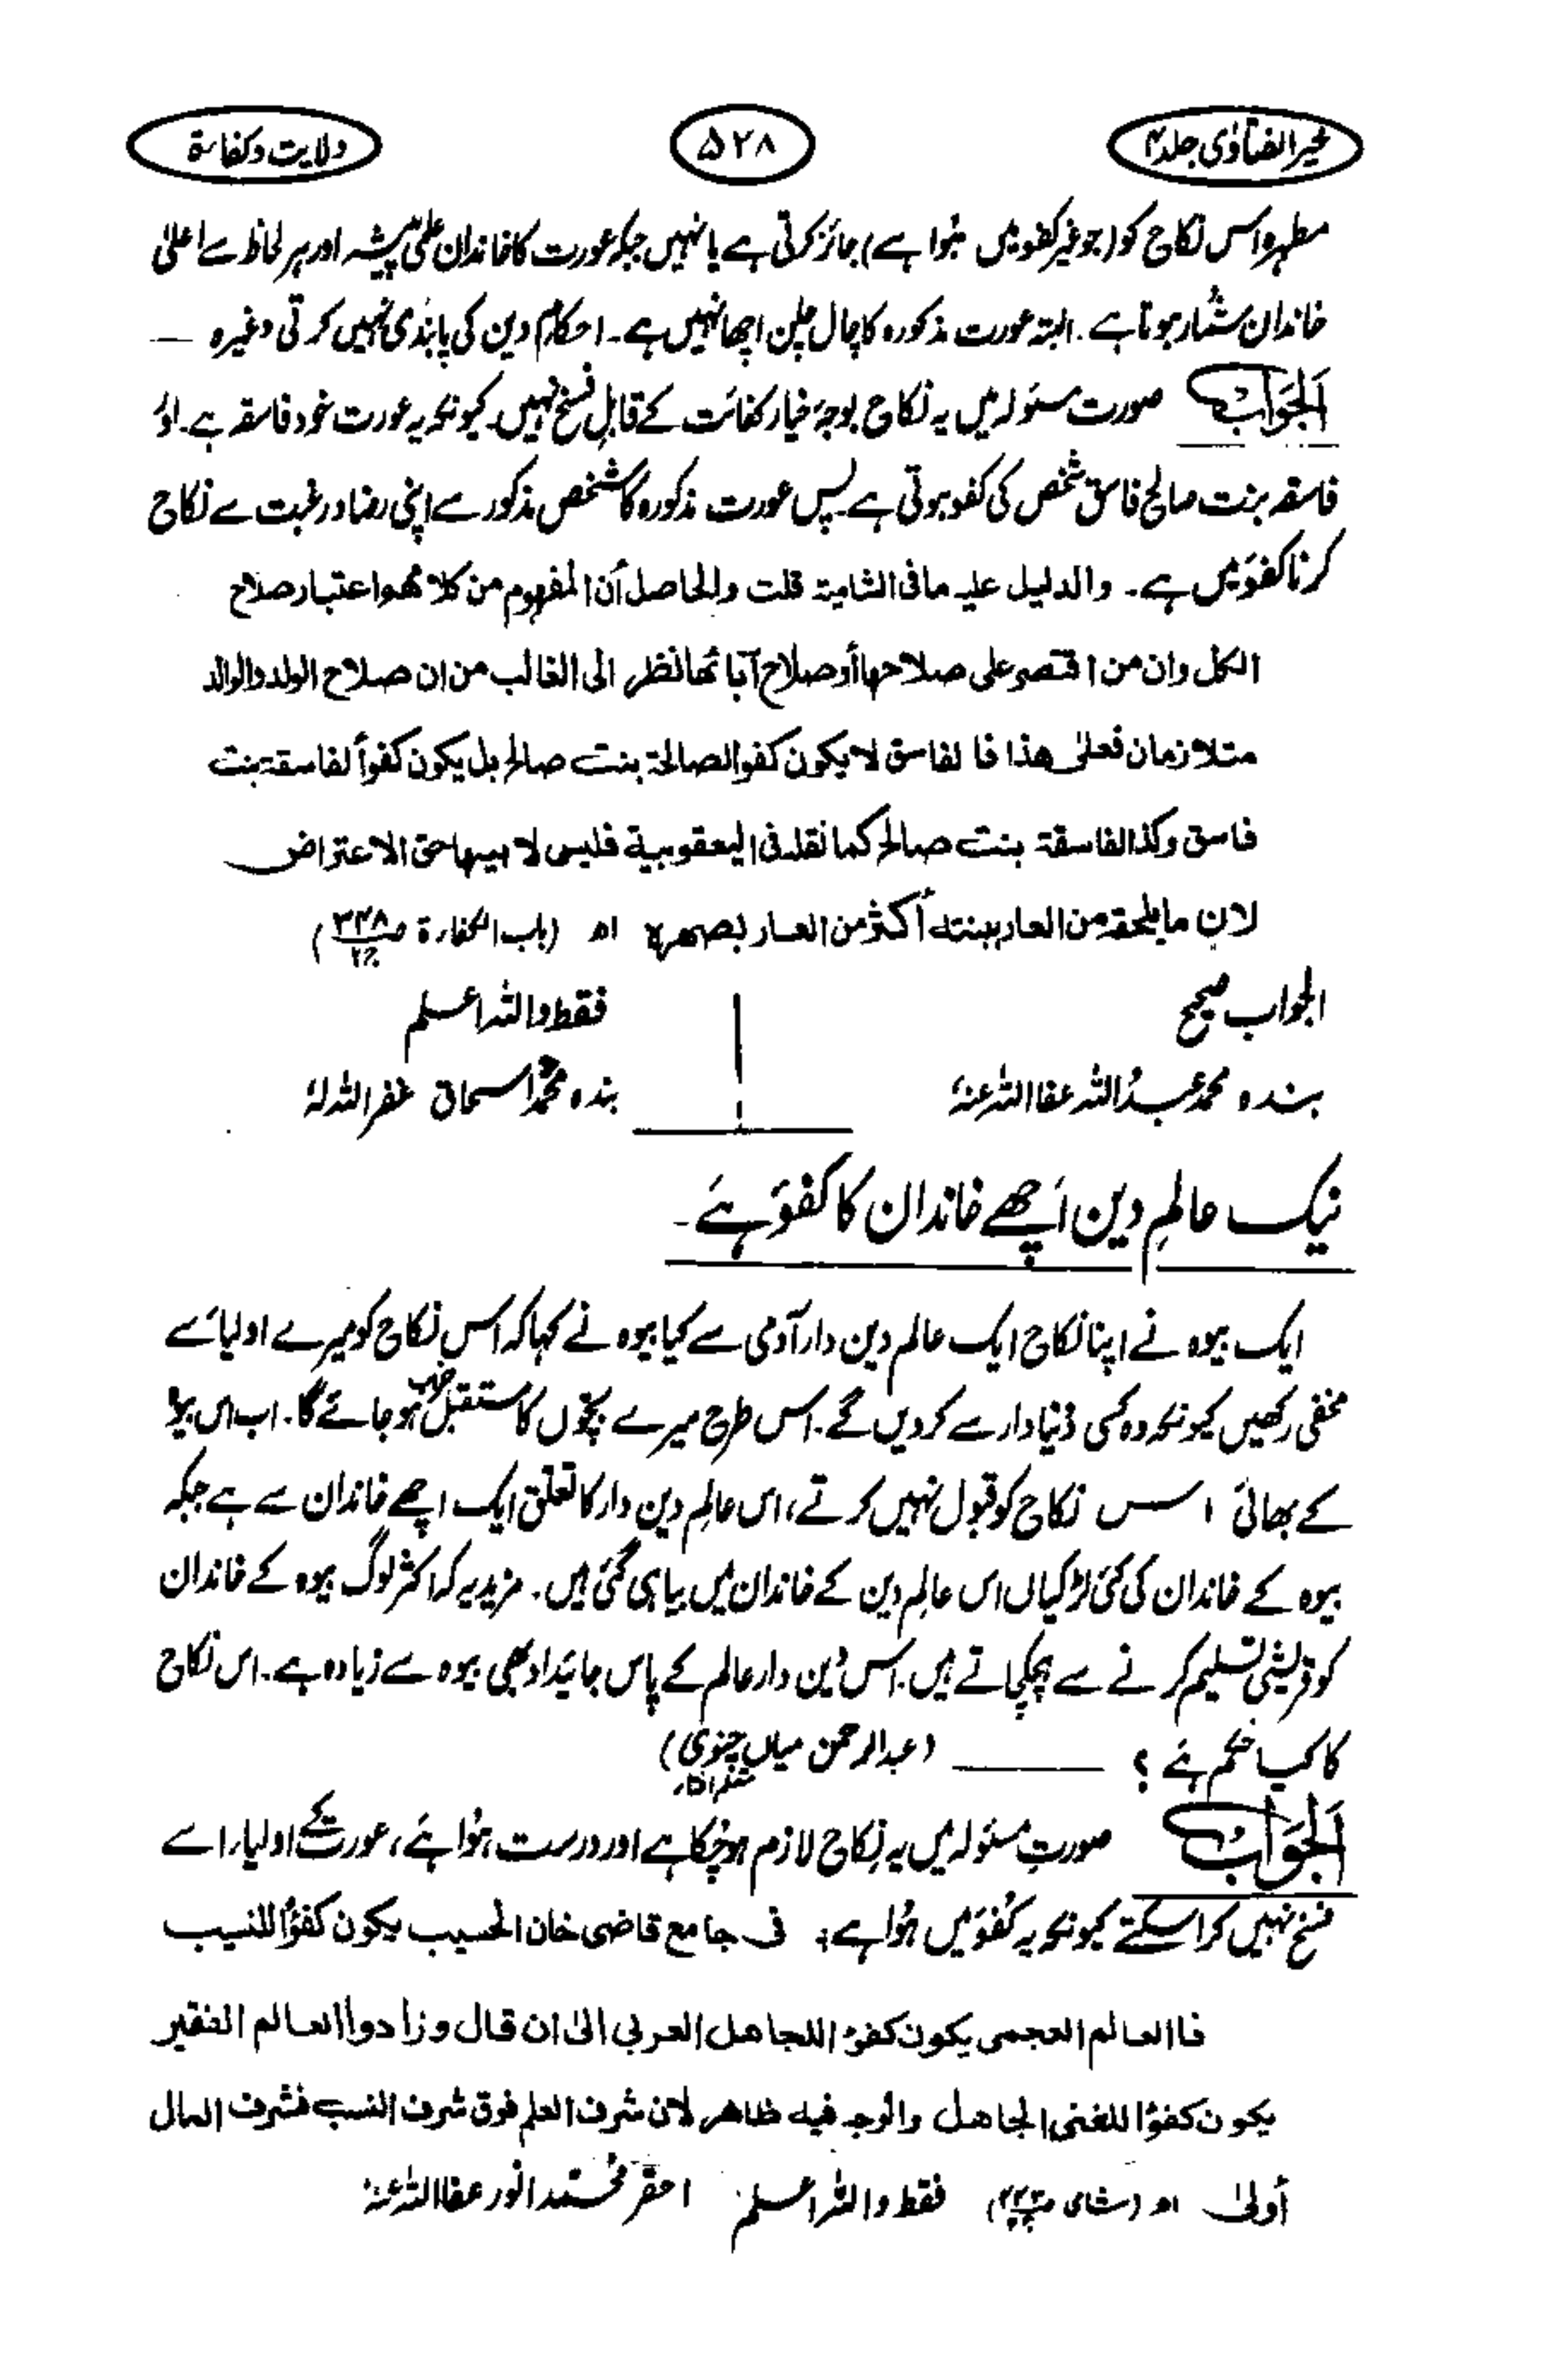 خیر الفتاوٰی جلد۴
۵۲۸
ولایت وکفاءۃ
مطہرہ اس نکاح کو (جو غیر کفو میں ہُوا ہے) جائز کرتی ہے یا نہیں جبکہ عورت کا خاندان علمی پیشہ اور ہر لحاظ سے اعلیٰ
خاندان شمار ہوتا ہے۔ البتہ عورت مذکورہ کا چال چلن اچھا نہیں ہے۔ احکام دین کی پابندی نہیں کرتی وغیرہ —
اَلجَوَابُ صورت مسئولہ میں یہ نکاح بوجۂ خیار کفائت کے قابلِ فسخ نہیں۔ کیونکہ یہ عورت خود فاسقہ ہے۔ اور
فاسقہ بنت صالح فاسق شخص کی کفو ہوتی ہے پس عورت مذکورہ کا شخص مذکور سے اپنی رضا و رغبت سے نکاح
کرنا کفوَ میں ہے۔ والدلیل علیہ مافی الشامیۃ قلت والحاصل أن المفهوم من كلامهم اعتبار صلاح
الكل وان من اقتصر على صلاحها أو صلاح آبائها نظر الى الغالب من ان صلاح الولد والوالد
متلازمان فعلىٰ هذا فالفاسق لا يكون كفوا لصالحة بنت صالح بل يكون كفواً لفاسقة بنت
فاسق وكذا لفاسقة بنت صالح كما نقله فى اليعقوبية فليس لابيها حق الاعتراض
لان ما يلحقه من العار ببنته أكثر من العار بصهره اه (باب الكفارة ص۳۴۸ ج۲)
الجواب صحیح
فقط واللہ اعلم
بندہ محمد عبدُاللہ عفا اللہ عنہٗ
بندہ محمّد اسحاق غفر اللہ لہٗ
نیک عالمِ دین اَچھے خاندان کا کفوَ ہَے۔
ایک بیوہ نے اپنا نکاح ایک عالم دین دار آدمی سے کیا بیوہ نے کہا کہ اس نکاح کو میرے اولیائے
مخفی رکھیں کیونکہ وہ کسی دُنیا دار سے کردیں گے۔ اس طرح میرے بچّوں کا مستقبل خراب ہو جائے گا۔ اب اس بیوہ
کے بھائی اس نکاح کو قبول نہیں کرتے، اس عالمِ دین دار کا تعلق ایک اچھے خاندان سے ہے جبکہ
بیوہ کے خاندان کی کئی لڑکیاں اس عالِم دین کے خاندان میں بیاہی گئی ہیں۔ مزید یہ کہ اکثر لوگ بیوہ کے خاندان
کو قریشی تسلیم کرنے سے ہچکچاتے ہیں۔ اس دین دار عالم کے پاس جائیداد بھی بیوہ سے زیادہ ہے۔ اس نکاح
کا کیا حکم ہَے ؟ ——— (عبدالرحمن میاں چنوی)
اَلجَوَابُ صورتِ مسئولہ میں یہ نِکاح لازم ہوچُکا ہے اور درست ہُوا ہَے، عورت کے اولیاء اسے
فسخ نہیں کراسکتے کیونکہ یہ کُفوَ میں ہُوا ہے؛ فی جامع قاضی خان الحسیب یکون کفؤًا للنسیب
فاالعالم العجمی یکون کفوءًا للجاهل العربی الیٰ ان قال وزادوا العالم الفقیر
یکون کفوءًا للغنی الجاهل والوجه فیه ظاهر لان شرف العلم فوق شرف النسب فشرف المال
أولیٰ اھ (شامی) فقط واللہ اعلم احقر محمّد انور عفا اللہ عنہٗ